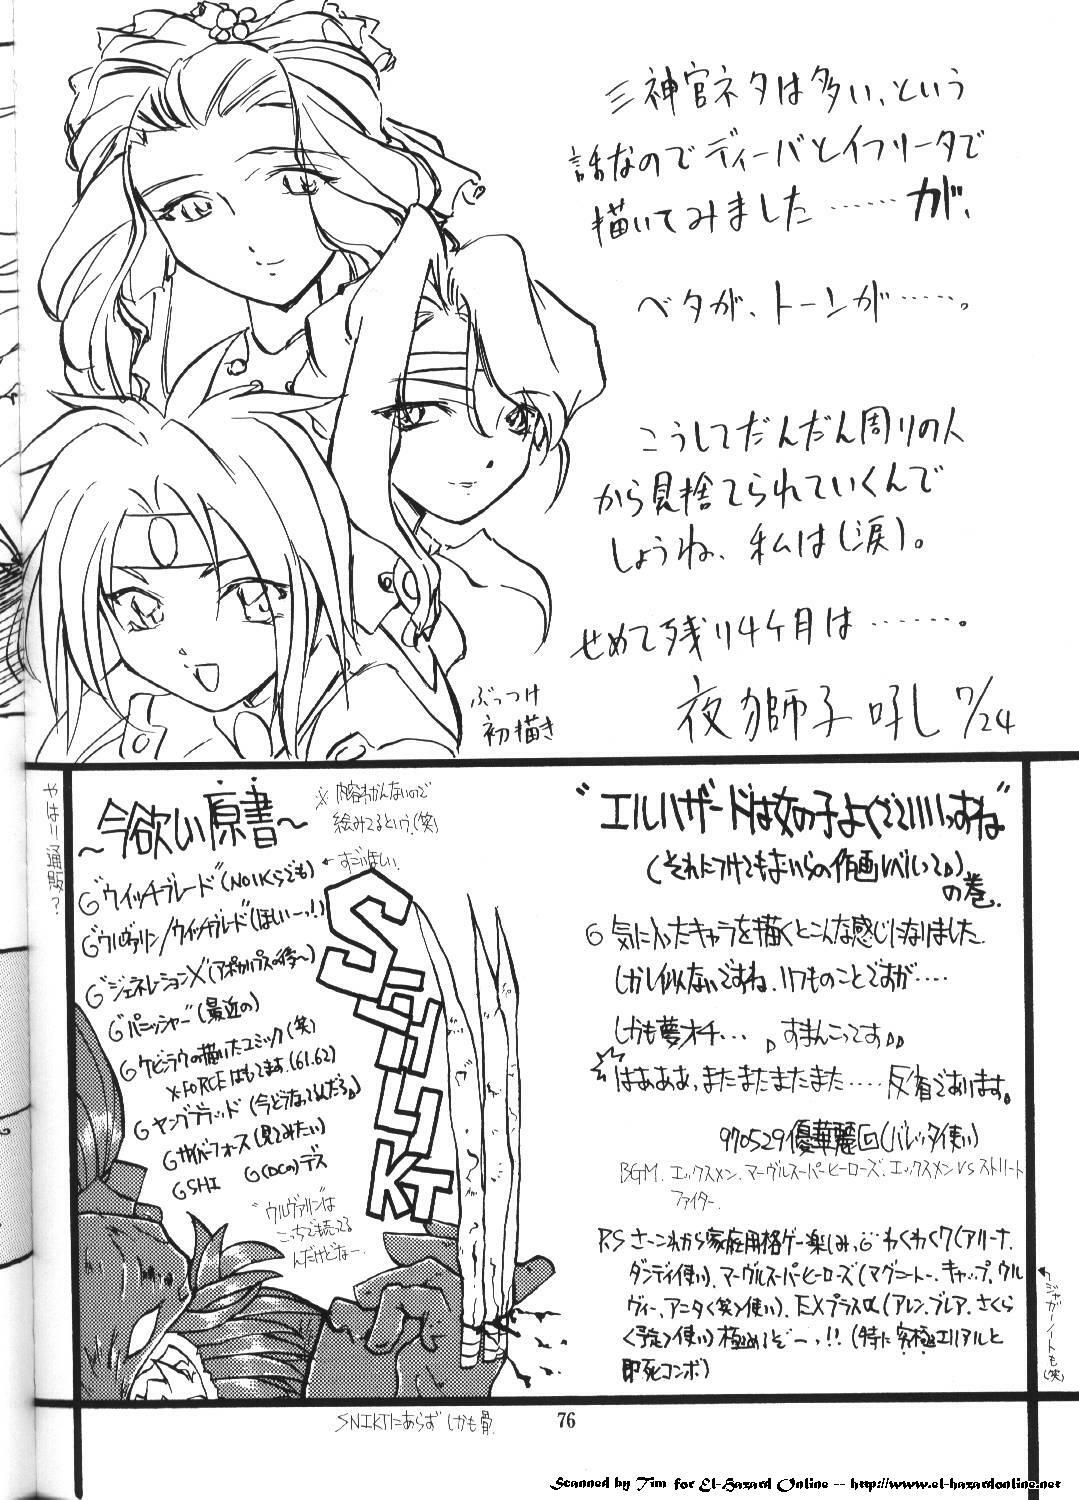 三神官ネタは多い、という
話なのでディーバとイフリータで
描いてみました……が、
ベタが、トーンが……。
こうしてだんだん周りの人
から見捨てられていくんで
しょうね、私は(涙)。
せめて残り4ケ月は……。
夜獅子吼し 7/24
ぶっつけ
初描き
やはり通販?
〜今欲しい原書〜
※内容わかんないので
絵みてるという(笑)
←すごいほしい
G"ウイッチブレード"(NO1Kらでも)
G"ウルヴァリン/ウィッチブレード"(ほしいーっ!)
G"ジェネレーションX"(アポカリプスの後〜)
G"パニッシャー"(最近の)
Gケビラウの描いたコミック(笑)
X-FORCEはもてます.(61.62)
Gヤングブラッド(今どうなってるんだろ)
Gサイバーフォース(見てみたい)
GSHI G(DCの)デス
"ウルヴァリン"は
こっちで売ってる
んだけどなー
SNIKT
SNIKTにあらず しかも骨
"エルハザードは女の子よくていいっすね"
(それにつけてもおいらの作画レベルって)
の巻.
G 気に入ったキャラを描くとこんな感じになりました.
しかし似ないですね.いつものことですが....
しかも夢オチ... すまんこってす
はぁぁぁ,またまたまたまた..... 反省であります。
970529優華麗 (バレッタ使い)
BGM.エックスメン.マーヴルスーパーヒーローズ.エックスメンVSストリート
ファイター.
P.S さーこれから家庭用格ゲー楽しみ.G わくわく7(アリーナ.
ダンディ使い).マーヴルスーパーヒーローズ(マグニートー.キャップ.ウル
ヴィー.アニタ<笑>使い).EXプラスα(アレン.ブレア.さくら
<予定>使い)極めるぞーっ!!(特に究極エリアルと
即死コンボ)
ジャガーノートも(笑)
76
Scanned by Tim for El-Hazard Online -- http://www.el-hazardonline.net